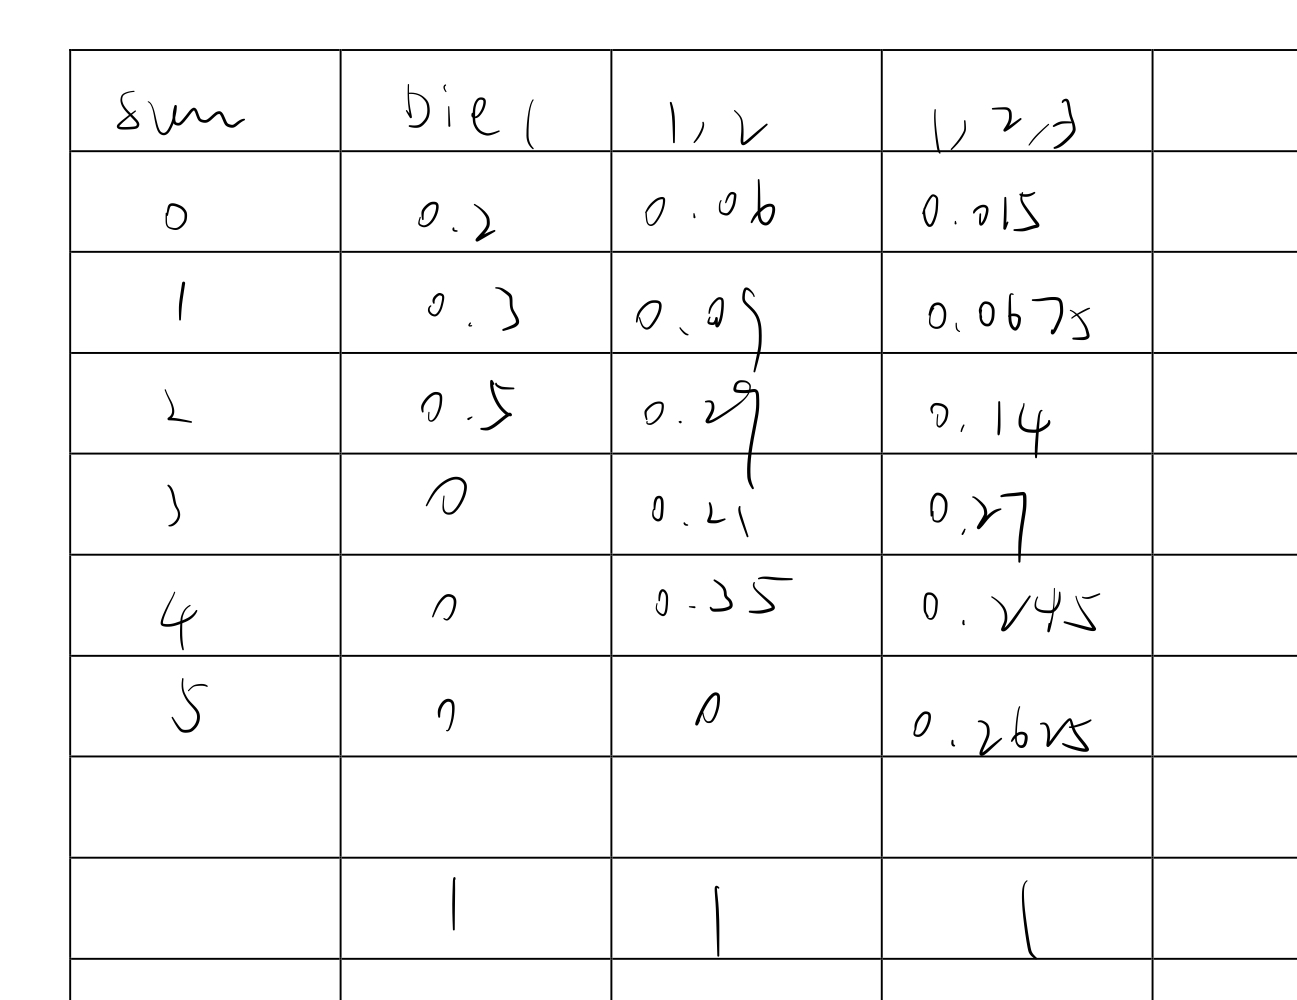 Sum Die 1 1, 2 1, 2, 3
0 0.2 0.06 0.015
1 0.3 0.09 0.0675
2 0.5 0.29 0.14
3 0 0.21 0.27
4 0 0.35 0.245
5 0 0 0.2625
1 1 1